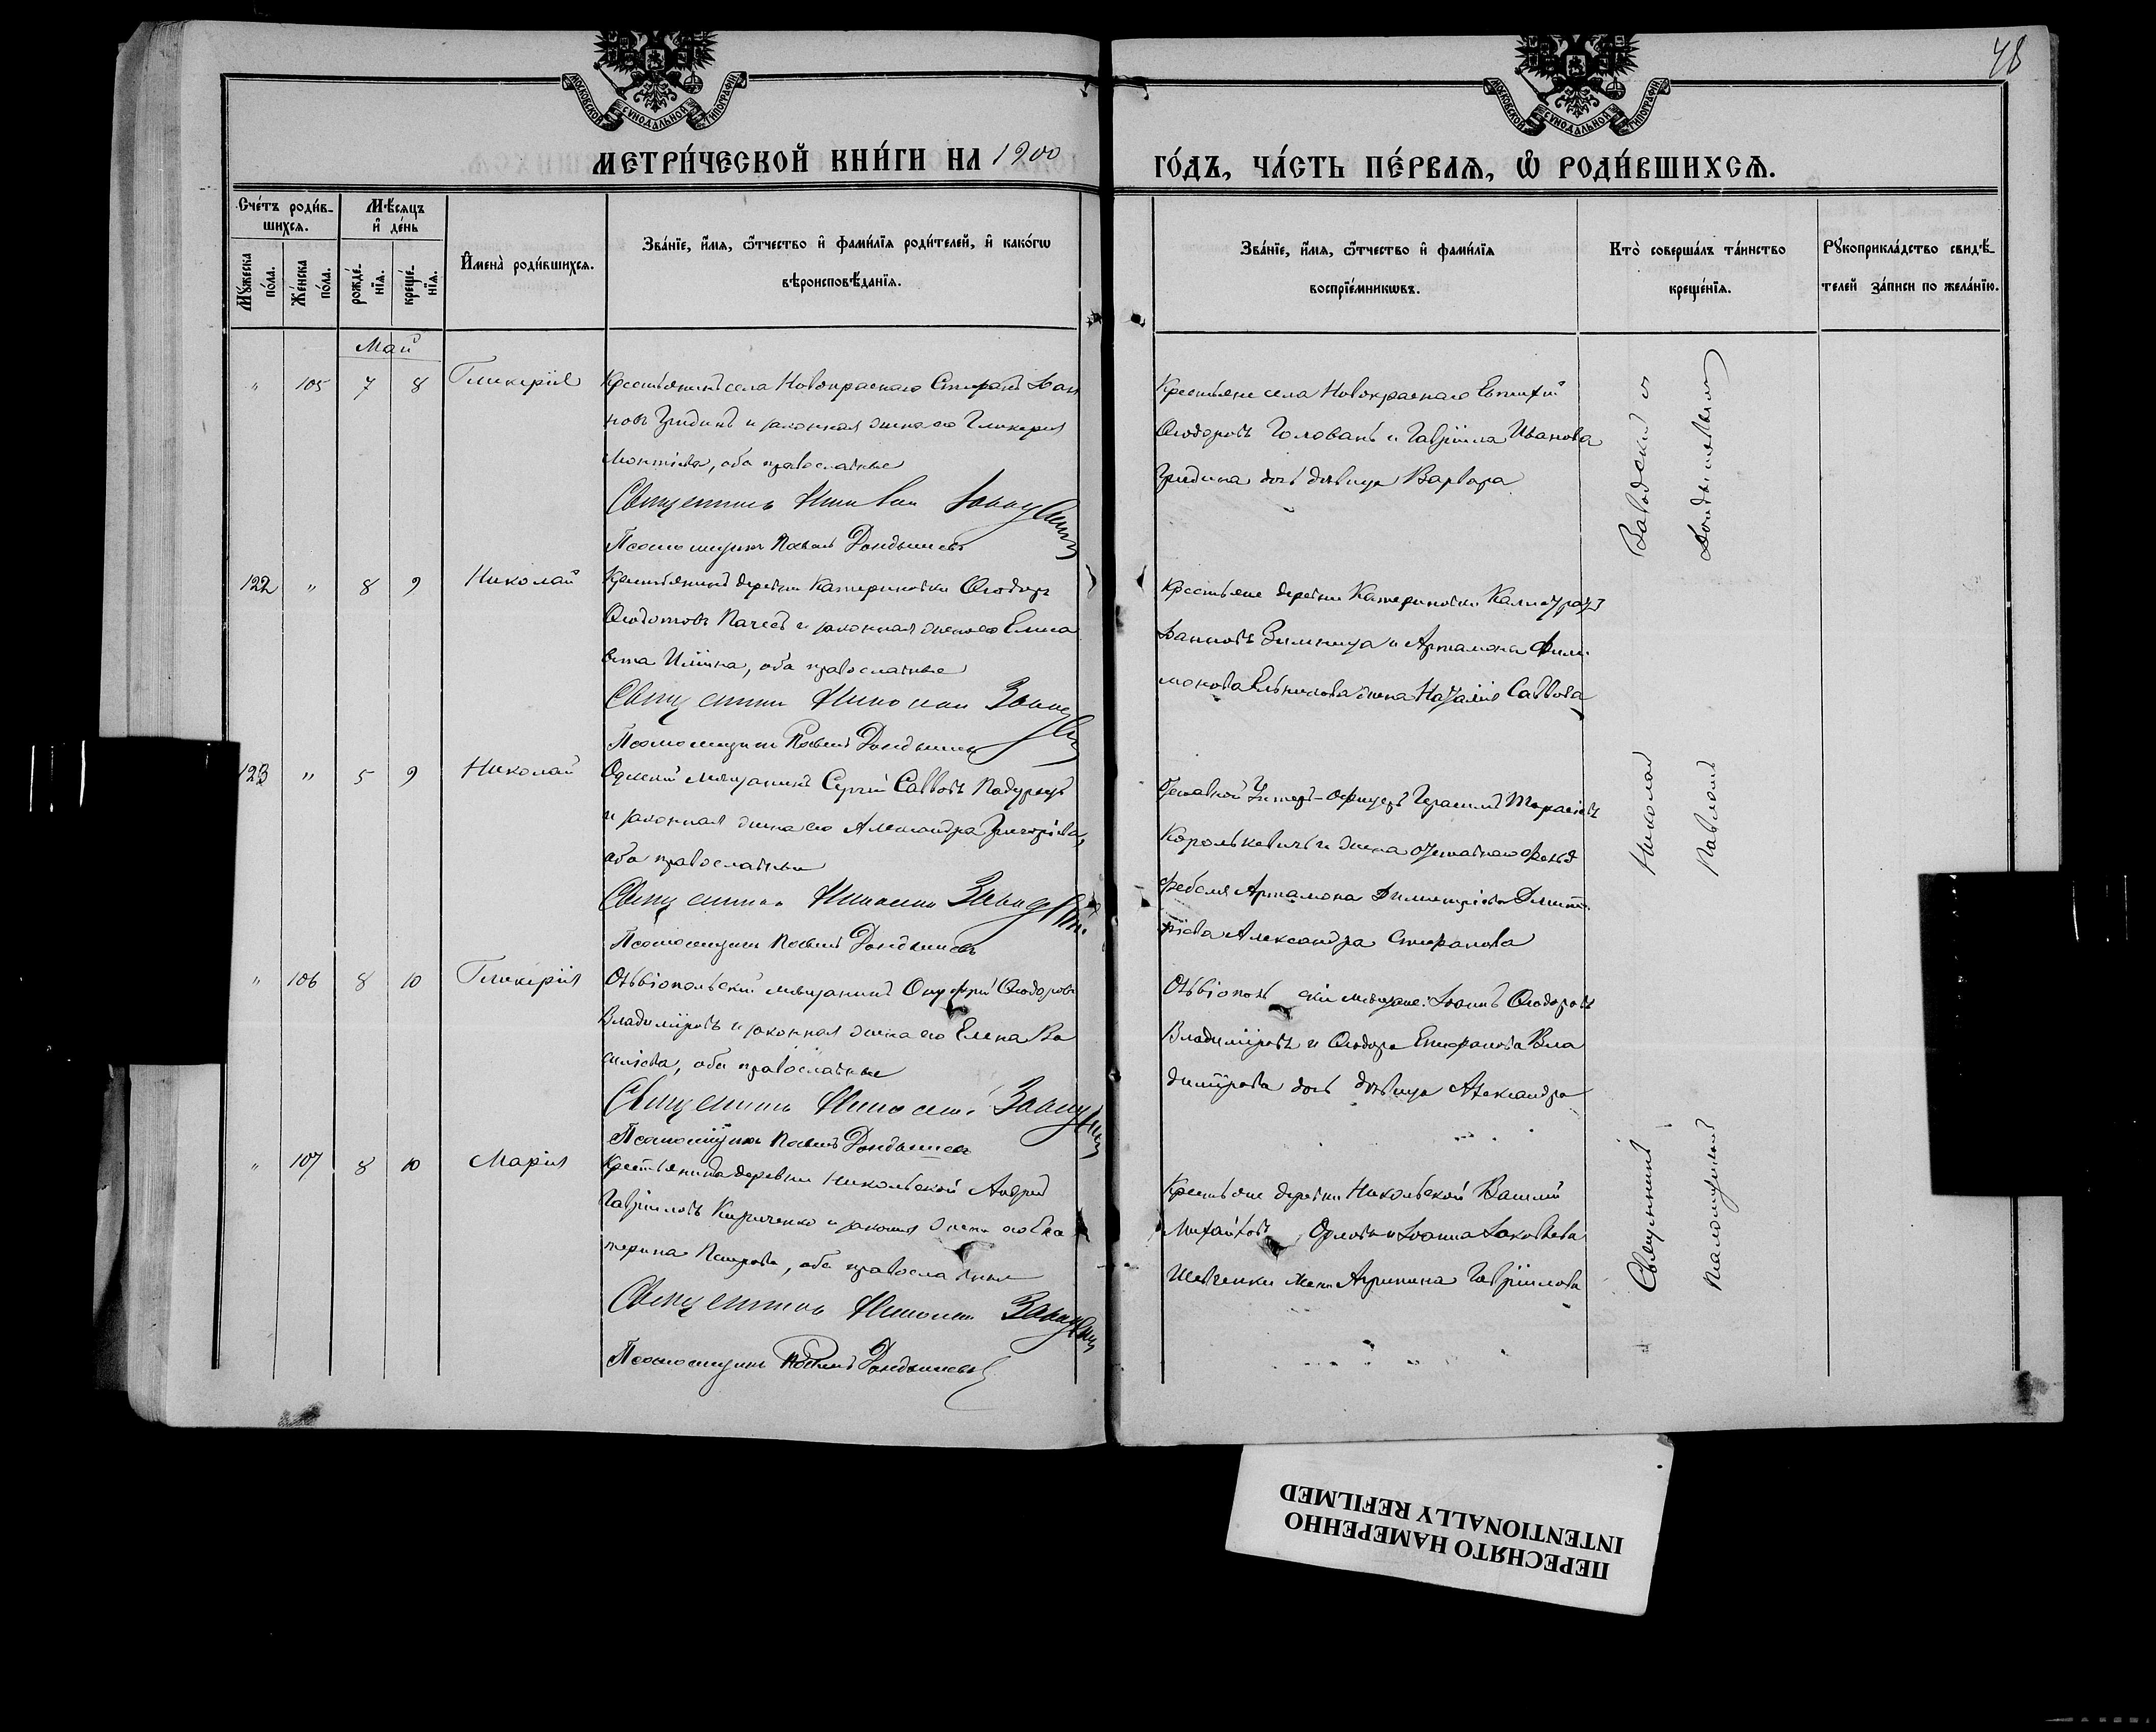 48
МОСКОВСКОЙ СѴНОДАЛЬНОЙ ТИПОГРАФІИ
МОСКОВСКОЙ СѴНОДАЛЬНОЙ ТИПОГРАФІИ
МЕТРИ́ЧЕСКОЙ КНИ́ГИ НА 1900
ГО́ДЪ, ЧА́СТЬ ПЕ́РВАѦ, Ѡ РОДИ́ВШИХСѦ.
Сче́тъ роди́в-
шихся.
Мѣ́сяцъ
и де́нь
Мꙋжеска по́ла.
Же́нска по́ла.
рожде́-нїя.
креще́-нїя.
Имена̀ роди́вшихся.
Зва́нїе, и́мя, ѻ҆́тчество и фами́лїя роди́телей, и како́гѡ
вѣроисповѣ́данїя.
Зва́нїе, и́мя, ѻ҆́тчество и фами́лїя
воспрїе́мникѡвъ.
Кто̀ соверша́лъ та́инство
креще́нїя.
Рꙋкоприкла́дство свидѣ́-
телей за́писи по жела́нїю.
Май
" 105 7 8 Гликерія
Крестьянинъ села Новокраснаго Стефанъ Іоан
новъ Гридинъ и законная жена его Гликерія
Леонтіева, оба православные
Священникъ Николай Заводскій
Псаломщикъ Павелъ Дондышевъ
Крестьяне села Новокраснаго Евтихій
Ѳеодоровъ Голованъ и Гавріила Иванова
Гридина дочь дѣвица Варвара
122 " 8 9 Николай
Крестьянинъ деревни Катериновки Ѳеодоръ
Ѳеодотовъ и законная жена его Елиса
вета Ильина, оба православные
Священникъ Николай
Псаломщикъ Павелъ Дондышевъ
Крестьяне деревни Катериновки
Іоанновъ Зимница и Артамона Фили
монова жена Наталія Саввова
123 " 5 9 Николай
Одесскій мѣщанинъ Сергій Саввовъ Падурецъ
и законная жена его Александра Григоріева,
оба православные
Священникъ Николай
Псаломщикъ Павелъ Дондышевъ
Отставной Унтеръ-офицеръ Герасимъ Тарасіевъ
Королькевичъ и жена отставнаго фельд
фебеля Артамона Димитріева Дмит
ріева Александра Стефанова
" 106 8 10 Гликерія
Ольвіопольскій мѣщанинъ Онуфрій Ѳеодоровъ
Владиміровъ и законная жена его Елена Ва
силіева, оба православные
Священникъ Николай
Псаломщикъ Павелъ Дондышевъ
Ольвіополь скіе мѣщане: Іоаннъ Ѳеодоровъ
Владиміровъ и Ѳеодора Епифанова Вла
димірова дочь дѣвица Александра
" 107 8 10 Марія
Крестьянинъ деревни Никольской Андрей
Гавріиловъ Кириченко и законная жена его Ека
терина Петрова, оба православные
Священникъ Николай
Псаломщикъ Павелъ Дондышевъ
Крестьяне деревни Никольской Василій
Михайловъ Орловъ и Іоанна Іаковлева
Шевченки жена Агрипина Гавріилова
Священникъ Николай Заводскій и
Псаломщикъ Павелъ Дондышевъ
ПЕРЕСНЯТО НАМЕРЕННО
INTENTIONALLY REFILMED